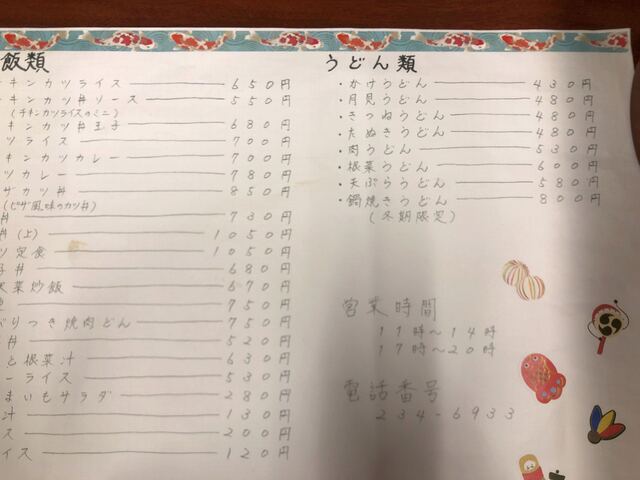 飯類
キンカツライス 650円
キンカツ丼ソース 550円
(チキンカツライスのミニ)
キンカツ丼玉子 680円
ツライス 700円
キンカツカレー 700円
ツカレー 780円
ザカツ丼 850円
(ピザ風味のカツ丼)
丼 730円
丼(上) 1050円
ツ定食 1050円
丼 680円
菜炒飯 670円
750円
りつき焼肉どん 750円
丼 520円
と根菜汁 630円
ーライス 530円
まいもサラダ 280円
汁 130円
ス 200円
イス 120円
うどん類
・かけうどん 430円
・月見うどん 480円
・きつねうどん 480円
・たぬきうどん 480円
・肉うどん 530円
・根菜うどん 600円
・天ぷらうどん 580円
・鍋焼きうどん 800円
(冬期限定)
営業時間
11時~14時
17時~20時
電話番号
234-6933